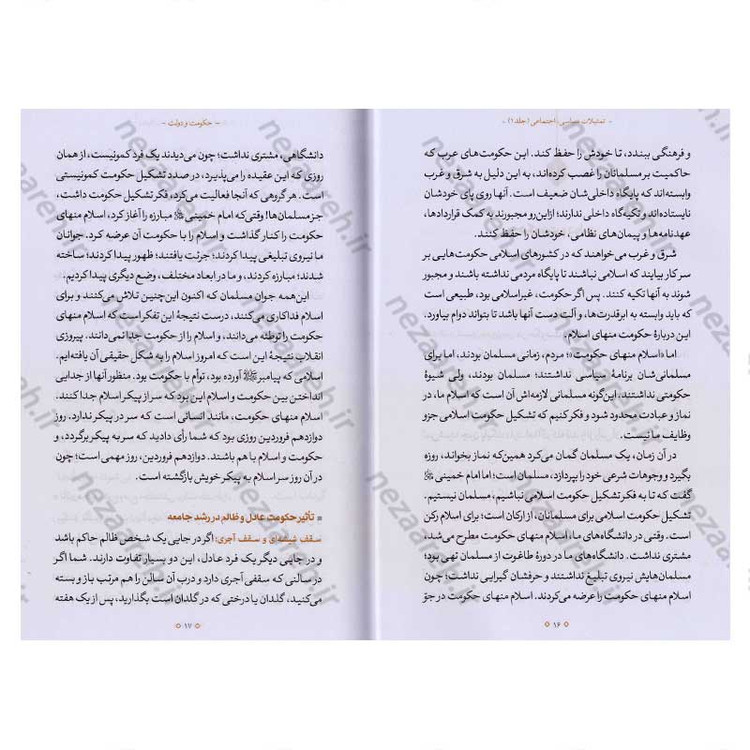 - تمثیلات سیاسی، اجتماعی (جلد ۱) -
و فرهنگی ببندد، تا خودش را حفظ کند. این حکومت‌های عرب که
حاکمیت بر مسلمانان را غصب کرده‌اند، به این دلیل به شرق و غرب
وابسته‌اند که پایگاه داخلی‌شان ضعیف است. آنها روی پای خودشان
نایستاده‌اند و تکیه‌گاه داخلی ندارند؛ ازاین‌رو مجبورند به کمک قراردادها،
عهدنامه‌ها و پیمان‌های نظامی، خودشان را حفظ کنند.
شرق و غرب می‌خواهند که در کشورهای اسلامی حکومت‌هایی بر
سر کار بیایند که اسلامی نباشند تا پایگاه مردمی نداشته باشند و مجبور
شوند به آنها تکیه کنند. پس اگر حکومت، غیراسلامی بود، طبیعی است
که باید وابسته به ابرقدرت‌ها، و آلت دست آنها باشد تا بتواند دوام بیاورد.
این دربارهٔ حکومت منهای اسلام.
اما «اسلام منهای حکومت»؛ مردم، زمانی مسلمان بودند، اما برای
مسلمانی‌شان برنامهٔ سیاسی نداشتند؛ مسلمان بودند، ولی شیوهٔ
حکومتی نداشتند. این‌گونه مسلمانی لازمه‌اش آن است که اسلام ما، در
نماز و عبادت محدود شود و فکر کنیم که تشکیل حکومت اسلامی جزو
وظایف ما نیست.
در آن زمان، یک مسلمان گمان می‌کرد همین‌که نماز بخواند، روزه
بگیرد و وجوهات شرعی خود را بپردازد، مسلمان است؛ اما امام خمینی
گفت که تا به فکر تشکیل حکومت اسلامی نباشیم، مسلمان نیستیم.
تشکیل حکومت اسلامی برای مسلمانان، از ارکان است؛ برای اسلام رکن
است. وقتی در دانشگاه‌های ما، اسلام منهای حکومت مطرح می‌شد،
مشتری نداشت. دانشگاه‌های ما در دورهٔ طاغوت از مسلمان تهی بود؛
مسلمان‌هایش نیروی تبلیغ نداشتند و حرفشان گیرایی نداشت؛ چون
اسلام منهای حکومت را عرضه می‌کردند. اسلام منهای حکومت در جوّ
۱۶
- حکومت و دولت -
دانشگاهی، مشتری نداشت؛ چون می‌دیدند یک فرد کمونیست، از همان
روزی که این عقیده را می‌پذیرد، در صدد تشکیل حکومت کمونیستی
است. هر گروهی که آنجا فعالیت می‌کرد، فکر تشکیل حکومت داشت،
جز مسلمان‌ها! وقتی‌که امام خمینی مبارزه را آغاز کرد، اسلام منهای
حکومت را کنار گذاشت و اسلام را با حکومت آن عرضه کرد. جوانان
ما نیروی تبلیغی پیدا کردند؛ جرئت یافتند؛ ظهور پیدا کردند؛ ساخته
شدند؛ مبارزه کردند، و ما در ابعاد مختلف، وضع دیگری پیدا کردیم.
این‌همه جوان مسلمان که اکنون این‌چنین تلاش می‌کنند و برای
اسلام فداکاری می‌کنند، درست نتیجهٔ این تفکر است که اسلام منهای
حکومت را توطئه می‌دانند، و اسلام را از حکومت جدا نمی‌دانند. پیروزی
انقلاب نتیجهٔ این است که امروز اسلام را به شکل حقیقی آن یافته‌ایم.
اسلامی که پیامبر آورده بود، توأم با حکومت بود. منظور آنها از جدایی
انداختن بین حکومت و اسلام این بود که سر از پیکر اسلام جدا کنند.
اسلام منهای حکومت، مانند انسانی است که سر در پیکر ندارد. روز
دوازدهم فروردین روزی بود که شما رأی دادید که سر به پیکر برگردد، و
حکومت و اسلام با هم باشند. دوازدهم فروردین، روز مهمی است؛ چون
در آن روز سر اسلام به پیکر خویش بازگشته است.
▪ تأثیر حکومت عادل و ظالم در رشد جامعه
سقف شیشه‌ای و سقف آجری: اگر در جایی یک شخص ظالم حاکم باشد
و در جایی دیگر یک فرد عادل، این دو بسیار تفاوت دارند. شما اگر
در سالنی که سقفی آجری دارد و درب آن سالن را هم مرتب باز و بسته
می‌کنید، گلدان یا درختی که در گلدان است بگذارید، پس از یک هفته
۱۷
nezaareh.ir